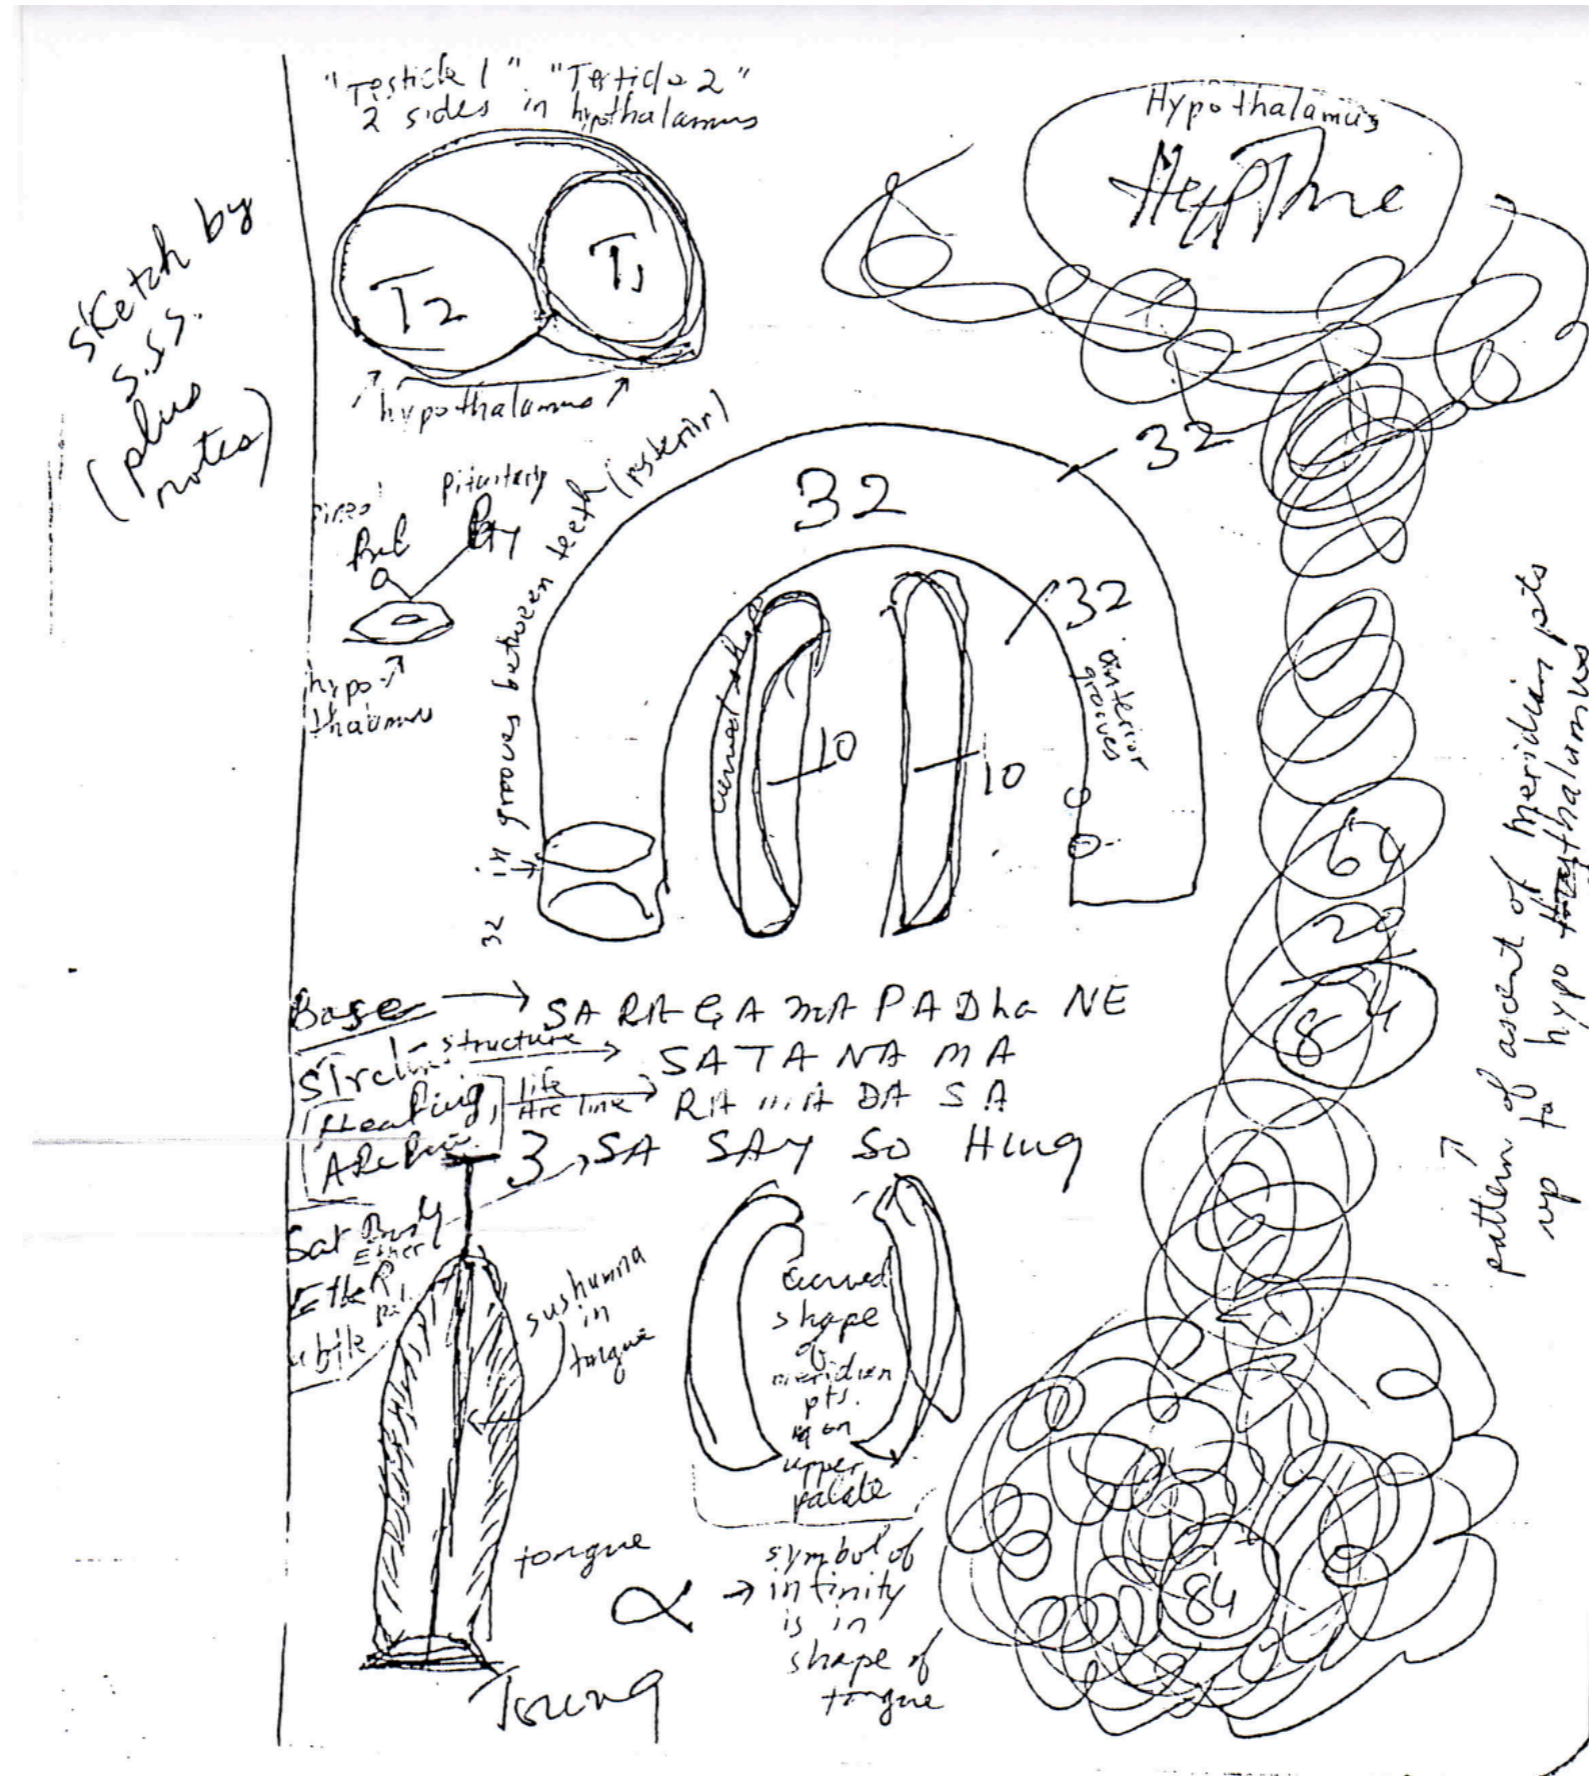 Sketch by
S.S.S.
(plus
notes)
"Testicle 1" "Testicle 2"
2 sides in hypothalamus
T2
T1
hypothalamus
Hypothalamus
pituitary
hypo
thalamus
32 in grooves between teeth (posterior)
32
32
32
anterior
grooves
curved
10
10
64
20
84
pattern of ascent of meridian pts
up to hypothalamus
Base → SA RA GA MA PA Dha NE
structure → SA TA NA MA
Healing, life → RA MA DA SA
Arc line
3 SA SAY SO Hung
Sat
Ether
Ether
sushumna
in
tongue
curved
shape
of
meridian
pts.
on
upper
palate
tongue
Toung
→ symbol of
infinity
is in
shape of
tongue
84